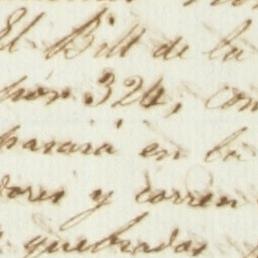 El Bill de la
por 324, con
pasará en la
dores y corren
quebrados